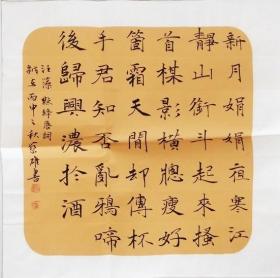 新月娟娟夜寒江
靜山銜斗起來搔
首楳影橫牕瘦好
箇霜天閒卻傳杯
手君知否亂鴉啼
後歸興濃於酒
汪藻點絳唇詞
丙申之秋雄書